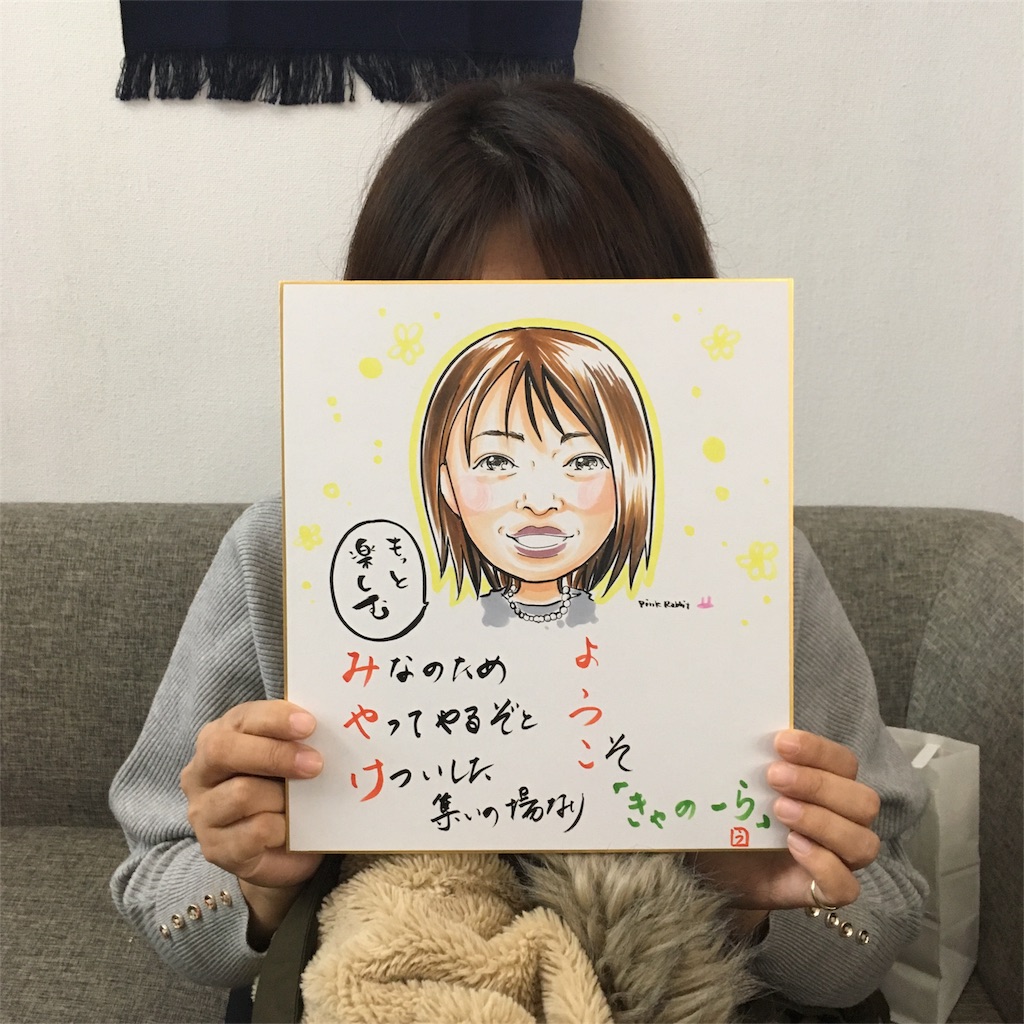 もっと
楽しむ
Pink Rabbit
みなのため
やってやるぞと
けついした
集いの場なり
ようこそ
「きゃのーら」